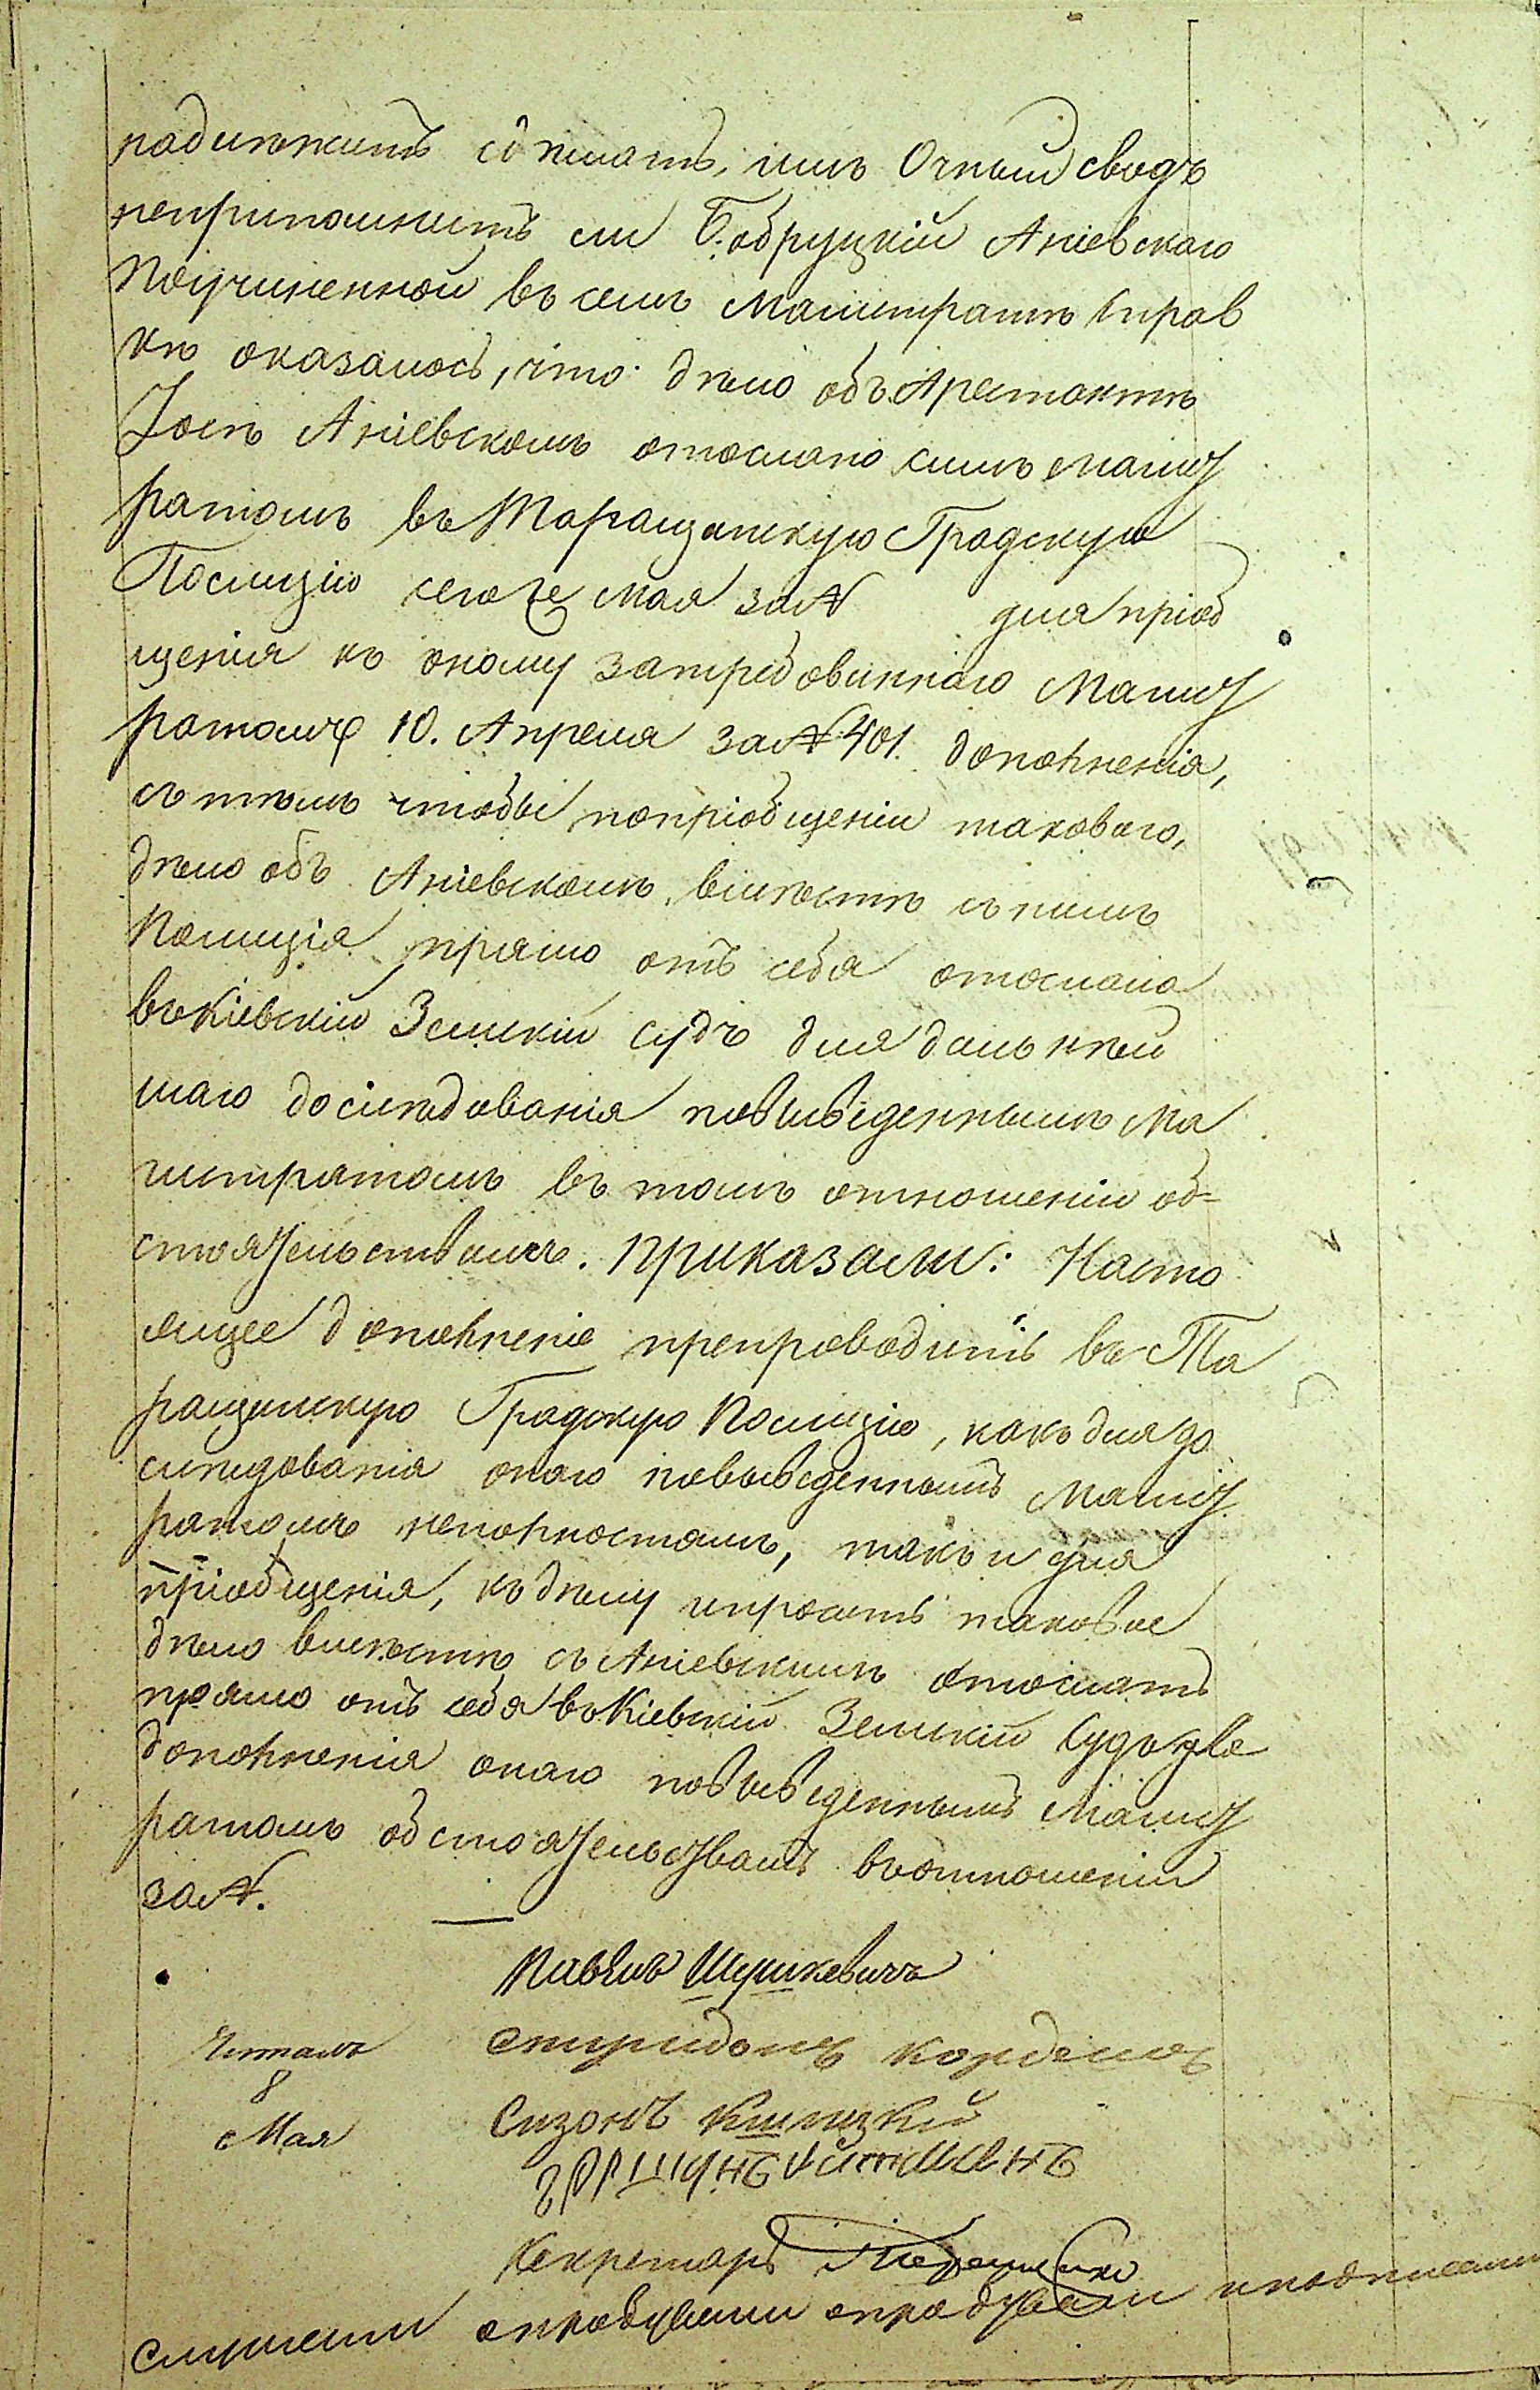 надлежитъ сдѣлать, имъ Очный сводъ
неприпомнитъ ли Бобруцкій Анiевскаго
Поучиненной въ семъ Магистратѣ Справ
кѣ оказалось, что дѣло объ Арестантѣ
Іосѣ Анiевскомъ отослано симъ Магист
ратомъ въ Таращанскую Градскую
Полицію сегоже Мая за№ для пріоб
щенія къ оному затребованнаго Магист
ратомъ 10. Апреля за№ 401. дополненія,
съ тѣмъ чтобы попріобщеніи таковаго,
дѣло объ Анiевскомъ, вмѣстѣ съ нимъ
Полиція прямо отъ себя отослала
въ Кіевскій Земскій судъ для дальнѣй
шаго дослѣдованія повыведеннымъ Ма
гистратомъ въ томъ отношеніи об-
стоятельствамъ. Приказали: Насто
ящее дополненіе препроводить въ Та
ращанскую Градскую Полицію, какъ для до
слѣдованія онаго повыведеннымъ Магист
ратомъ неполностямъ, такъ и для
пріобщенія, къ дѣлу ипросить таковое
дѣло вмѣстѣ съ Анiевскимъ отослать
прямо отъ себя въ Кіевскій Земскій Судъ для
дополненія онаго повыведеннымъ Магист
ратомъ обстоятельствамъ въотношеніи
за№.
Павелъ Шушкевичъ
Читалъ
8
Мая
Спиридонъ
Сизонъ
Секретарь
Слушали